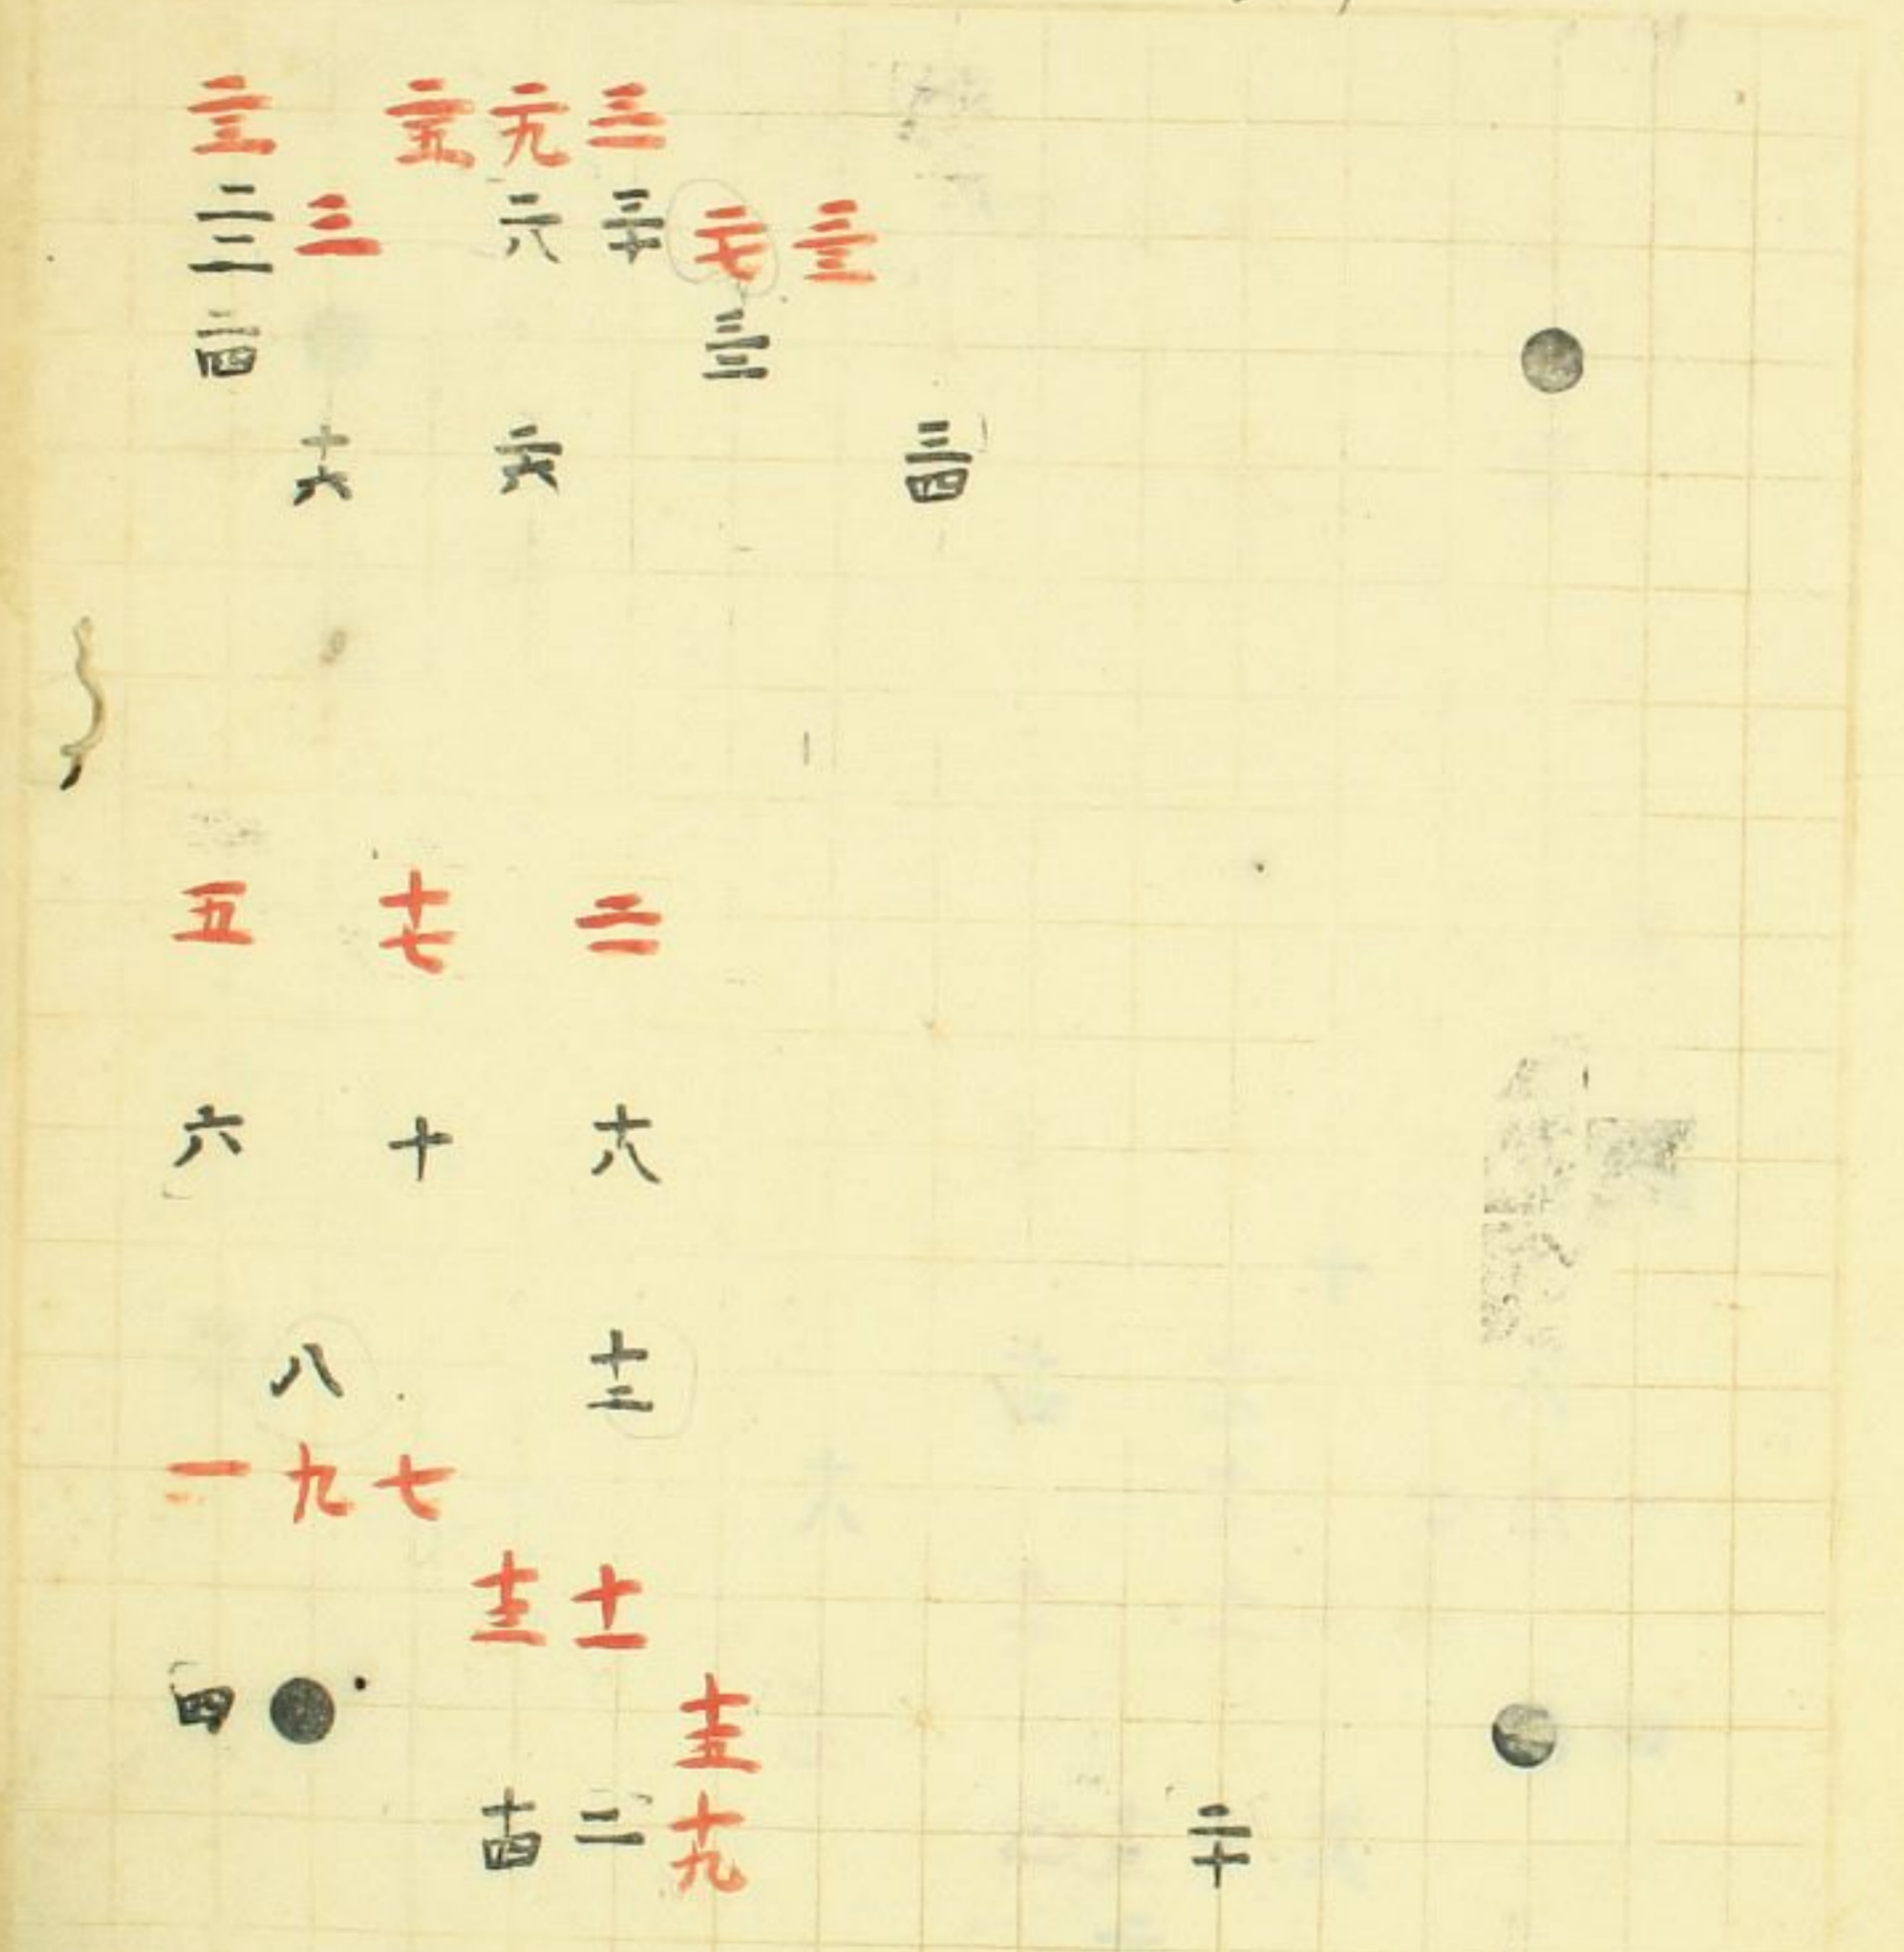 二三 二五 二九 三一
二二 三 二八 三十 二七 三三
二四 三二
十六 二六 三四
五 十七 二一
六 十 十八
八 十二
一 九 七
十三 十一
四 十五
十四 二 十九 二十